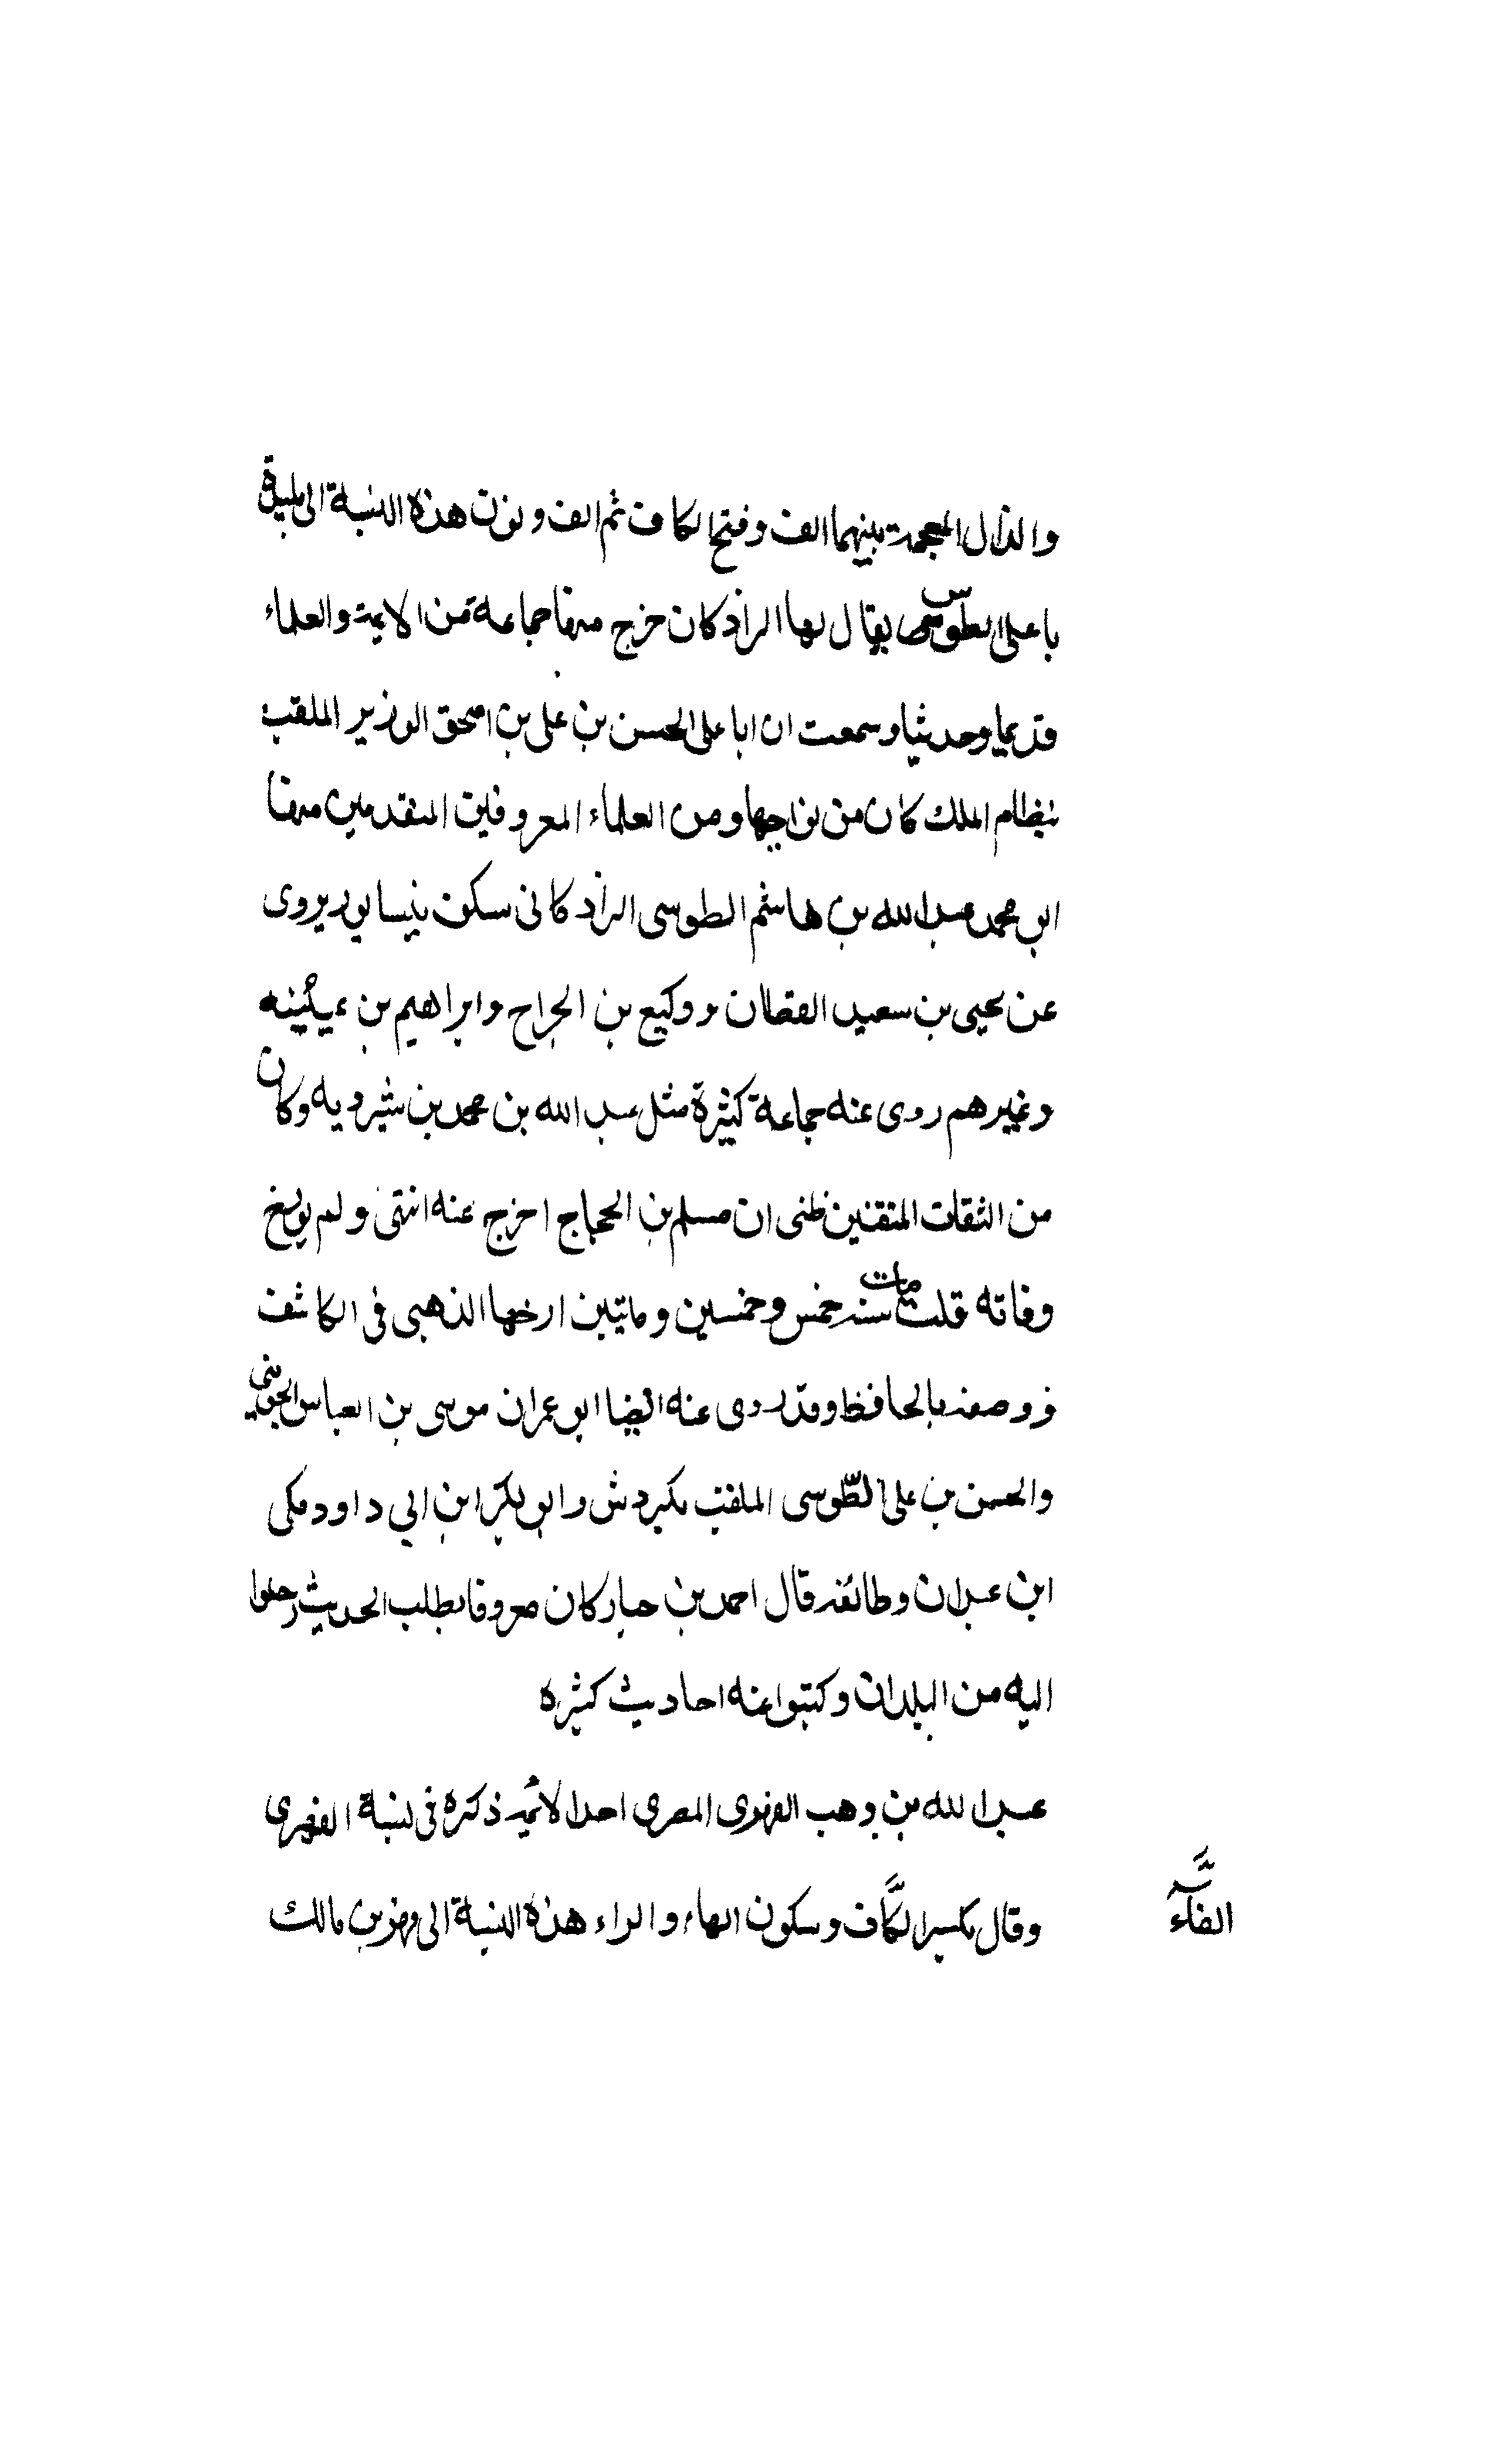 والذال المعجمة بينهما الف وفتح الكاف ثم الف ونون هذه النسبة الى بليدة
باعلى طوس يقال لها الراذكان خرج منها جماعة من الايمة والعلماء
قديما وحديثا وسمعت ان ابا على الحسن بن على بن اسحق الوزير الملقب
بنظام الملك كان من نواحيها ومن العلماء المعروفين المتقدمين منها
ابو محمد عبد الله بن هاشم الطوسى الراذكانى سكن نيسابور يروى
عن يحيى بن سعيد القطان ووكيع بن الجراح وابراهيم بن عيينه
وغيرهم روى عنه جماعة كثيرة مثل عبد الله بن محمد بن شيرويه وكان
من الثقات المتقنين ظنى ان مسلم بن الحجاج اخرج عنه انتهى ولم يورخ
وفاته قلت مات سنه خمس وخمسين وماتين ارخها الذهبى فى الكاشف
ووصفه بالحافظ وقد روى عنه ايضا ابو عمران موسى بن العباس الجوينى
والحسن بن على الطوسى الملقب بكردش وابو بكر ابن ابي داود مكى
ابن عبدان وطائفه قال احمد بن سيار كان معروفا بطلب الحديث رحلوا
اليه من البلدان وكتبوا عنه احاديث كثيره
عبد الله بن وهب الفهرى المصرى احد الائمه ذكره فى نسبة الفهرى
وقال بكسر الكاف وسكون الهاء والراء هذه النسبة الى فهر بن مالك
الفاء